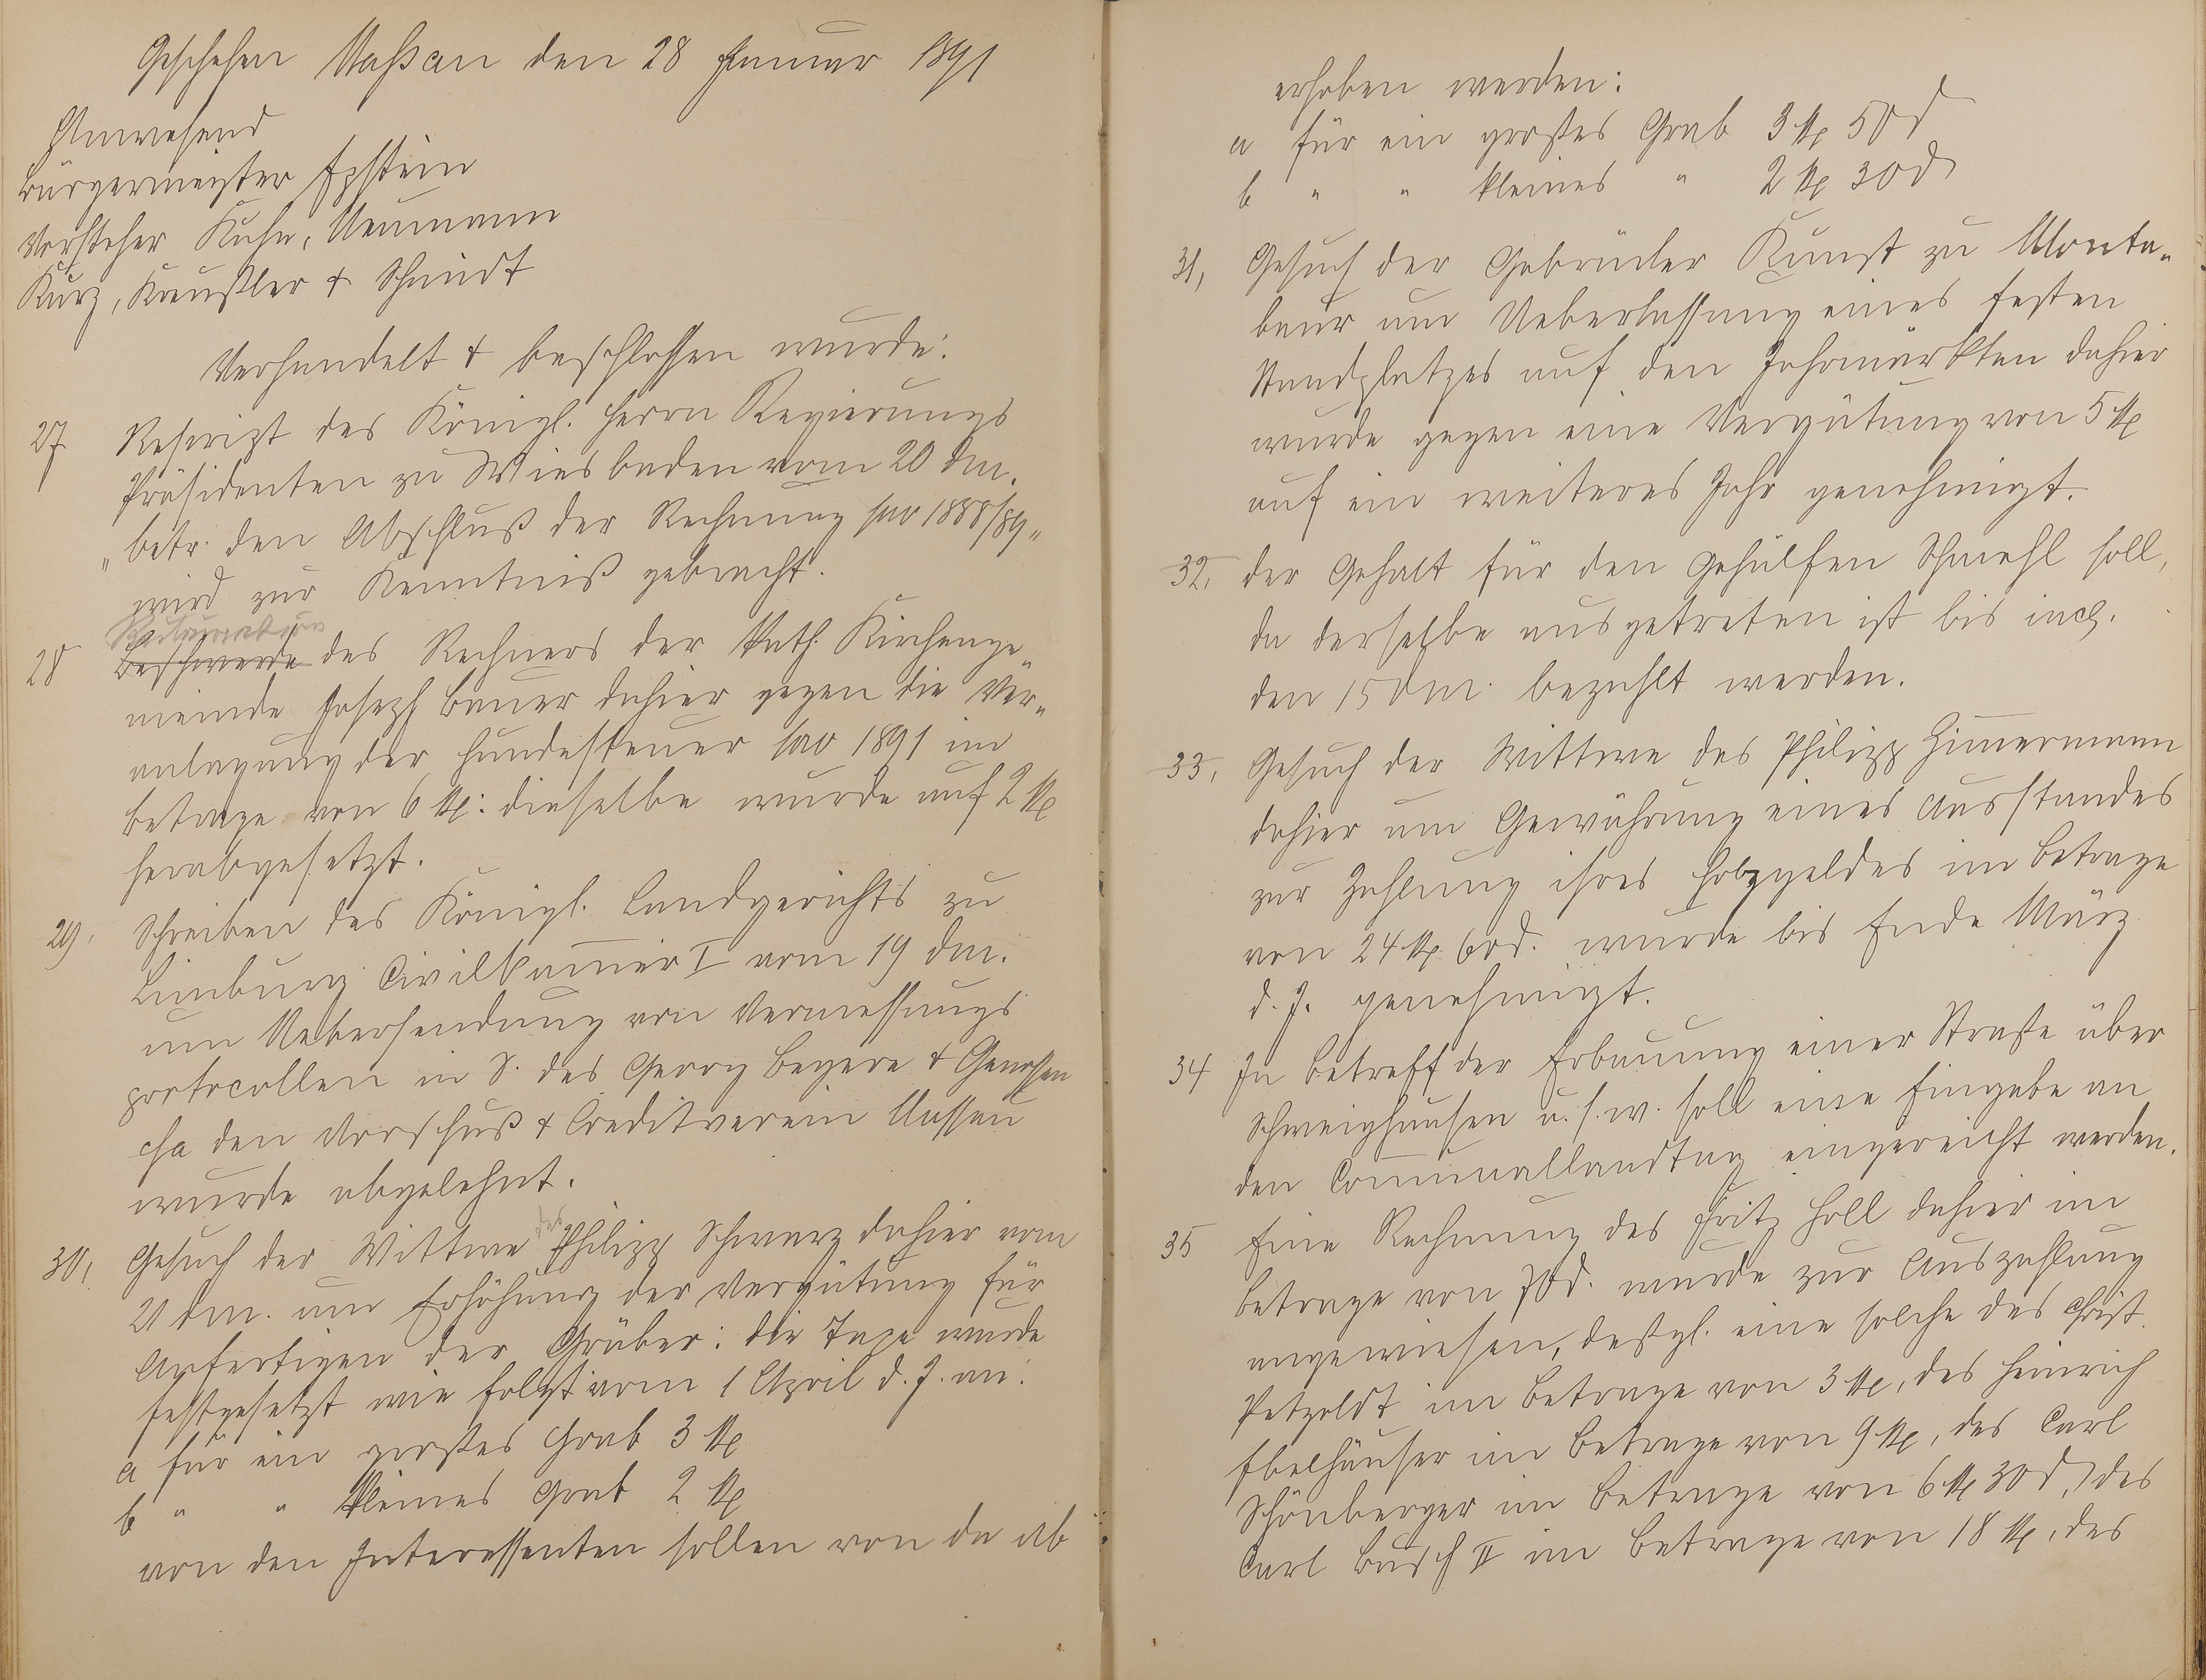 Geschehen Naßau den 28 Januar 1891
Anwesend
Bürgermeister Epstein
Vorsteher Kuhn, Neumann
Kurz, Kreußler & Schmidt
Verhandelt & beschlossen wurde:
27 Rescript des Königl. Herrn Regierungs
Präsidenten zu Wiesbaden vom 20 dM.
"betr. den Abschluß der Rechnung pro 1888/89"
wird zur Kenntniß gebracht.
Reclamation
28 Beschwerde des Rechners der kath. Kirchenge„
meinde Joseph Bauer dahier gegen die Ver„
anlagung der Hundesteuer pro 1891 im
Betrage von 6 M: dieselbe wurde auf 2 M
herabgesetzt.
29. Schreiben des Königl. Landgerichts zu
Limburg Civilkam̅er I vom 19 dM.
um Uebersendung von Vermessungs
protocollen in S. des Georg Beyere & Genossen
c/a den Vorschuß & Creditverein Nassau
wurde abgelehnt.
30, Gesuch der Wittwe Philipp Schwarz dahier vom
21 dM. um Erhöhung der Vergütung für
Anfertigen der Gräber: die Taxe wurde
festgesetzt wie folgt vom 1 April d. J. an:
a für ein großes Grab 3 M
b " " kleines Grab 2 M
von den Interessenten sollen von da ab
erhoben werden:
a für ein großes Grab 3 M 50 d
b " " kleines " 2 M 30 d
31, Gesuch der Gebrüder Kunst zu Monta„
baur um Ueberlassung eines festen
Standplatzes auf den Jahrmärkten dahier
wurde gegen eine Vergütung von 5 M
auf ein weiteres Jahr genehmigt.
32. der Gehalt für den Gehülfen Schmehl soll,
da derselbe ausgetreten ist bis incl.
den 15 dM. bezahlt werden.
33, Gesuch der Wittwe des Philipp Zim̅ermann
dahier um Gewährung eines Ausstandes
zur Zahlung ihres Holzgeldes im Betrage
von 24 M 60 d. wurde bis Ende März
d. J. genehmigt.
34 In Betreff der Erbauung einer Straße über
Schweighausen u. s. w. soll eine Eingabe an
den Com̅unallandtag eingereicht werden.
35 Eine Rechnung des Fritz Holl dahier im
Betrage von 70 d. wurde zur Auszahlung
angewiesen, deßgl. eine solche des Christ.
Petzoldt im Betrage von 3 M, des Heinrich
Ebelhäuser im Betrage von 9 M, des Carl
Schönberger im Betrage von 6 M 30 d, des
Carl Busch II im Betrage von 18 M, des